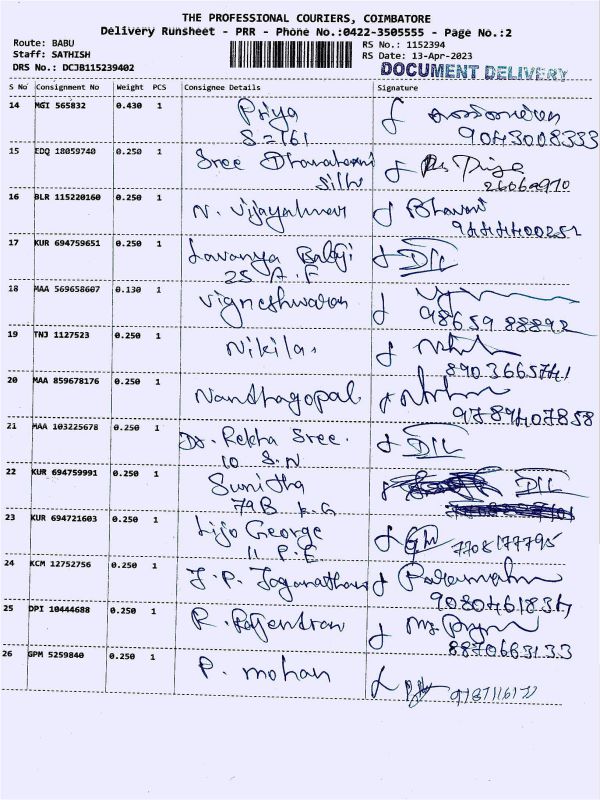 THE PROFESSIONAL COURIERS, COIMBATORE
Delivery Runsheet - PRR - Phone No.:0422-3505555 - Page No.:2
Route: BABU
Staff: SATHISH
DRS No.: DCJB115239402
RS No.: 1152394
RS Date: 13-Apr-2023
DOCUMENT DELIVERY
S No Consignment No Weight PCS Consignee Details Signature
14 MGI 565832 0.430 1 Priya
S-2161 9043008333
15 EDQ 18059740 0.250 1 Sree
Silks
16 BLR 115220160 0.250 1 N. Vijayakumar Bhavani
9444400251
17 KUR 694759651 0.250 1 Lavanya Balaji D/L
25 A.F
18 MAA 569658607 0.130 1 Vigneshwaran
9865988892
19 TNJ 1127523 0.250 1 Nikila
8903665741
20 MAA 859678176 0.250 1 Nandhagopal
9789407858
21 MAA 103225678 0.250 1 Dr. Rekha Sree. D/L
10 S.N
22 KUR 694759991 0.250 1 Sunitha D/L
79B K.G
23 KUR 694721603 0.250 1 Lijo George
11 P.E 7708177795
24 KCM 12752756 0.250 1 J.P. Jaganathan
25 DPI 10444688 0.250 1 R. Rajendran
8870663133
26 GPM 5259840 0.250 1 P. mohan